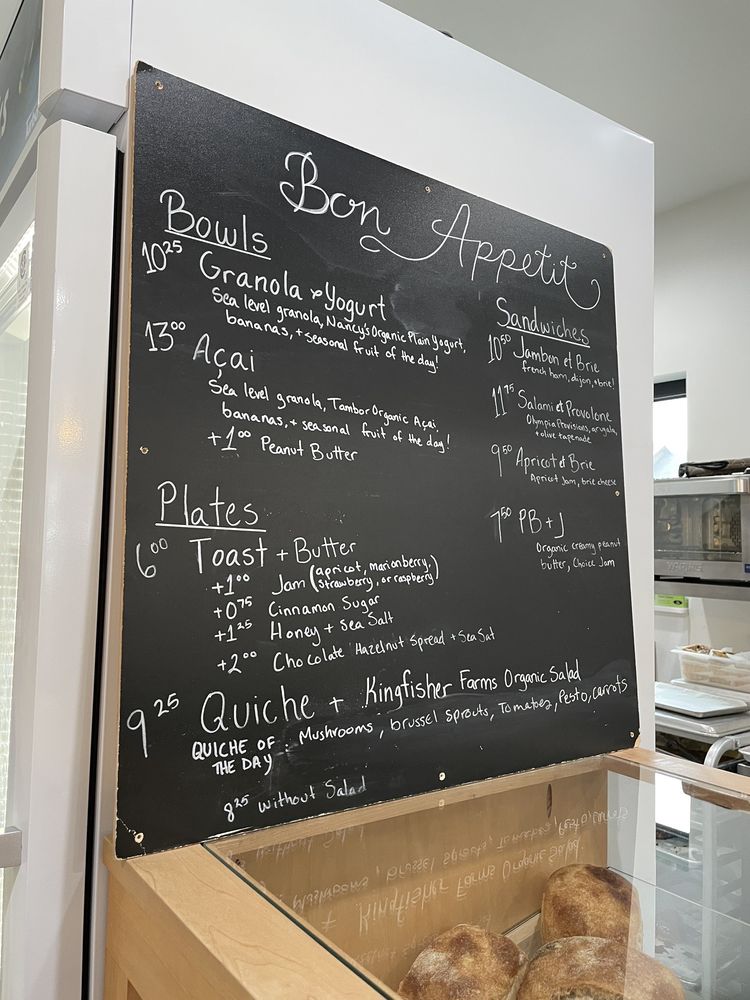 Bon Appetit
Bowls
10²⁵ Granola & Yogurt
Sea level granola, Nancy's Organic Plain Yogurt,
bananas, + seasonal fruit of the day!
13⁰⁰ Açai
Sea level granola, Tambor Organic Açai,
bananas, + seasonal fruit of the day!
+1⁰⁰ Peanut Butter
Plates
6⁰⁰ Toast + Butter
+1⁰⁰ Jam (apricot, marionberry,
strawberry, or raspberry)
+0⁷⁵ Cinnamon Sugar
+1²⁵ Honey + Sea Salt
+2⁰⁰ Chocolate Hazelnut Spread + Sea Salt
9²⁵ Quiche + Kingfisher Farms Organic Salad
QUICHE OF THE DAY: Mushrooms, brussel sprouts, Tomatoes, Pesto, carrots
8²⁵ without Salad
Sandwiches
10⁵⁰ Jambon et Brie
french ham, dijon, + brie!
11⁷⁵ Salami et Provolone
Olympia Provisions, arugula,
+ olive tapenade
9⁵⁰ Apricot et Brie
Apricot Jam, brie cheese
7⁵⁰ PB + J
Organic creamy peanut
butter, Choice Jam